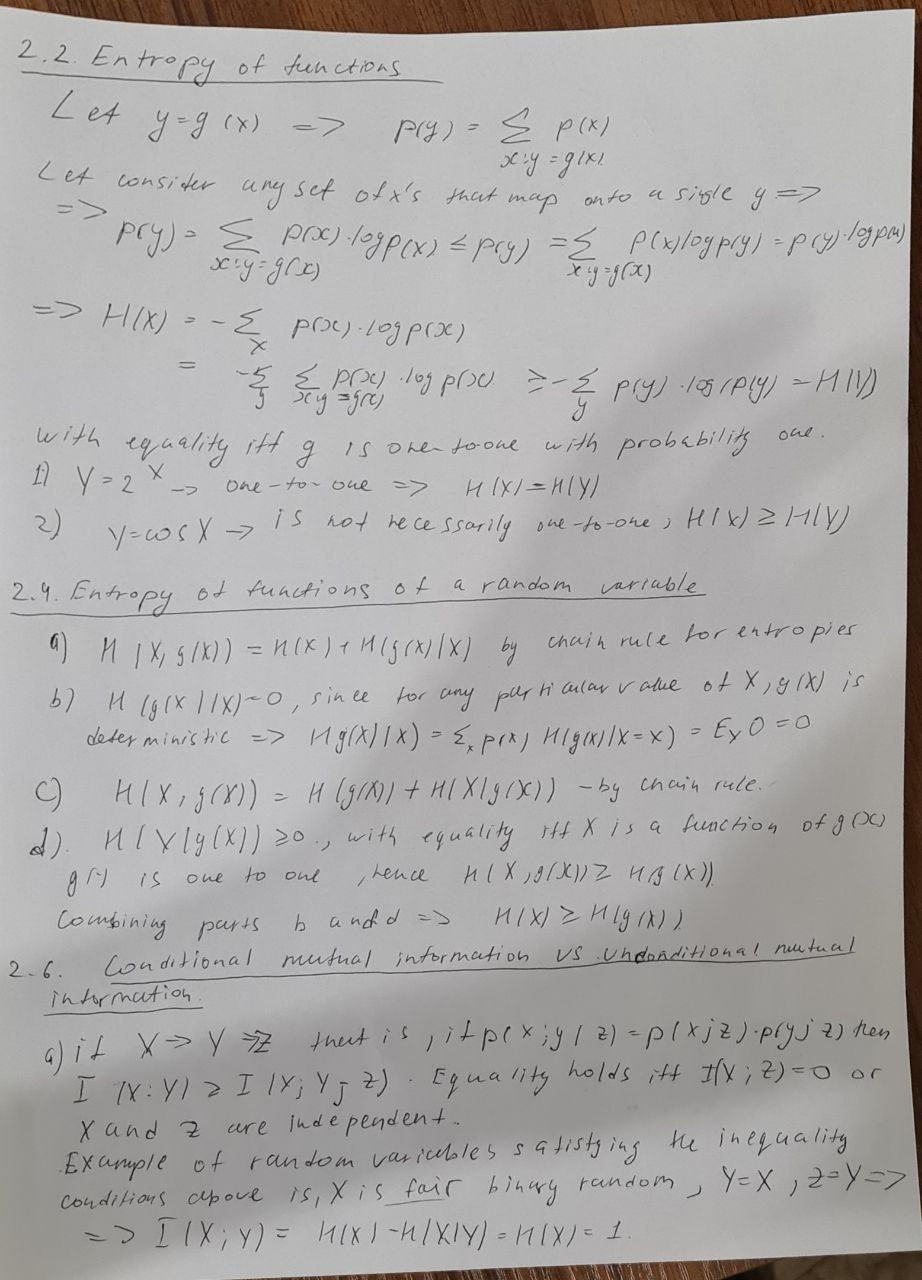 2.2. Entropy of functions
Let y=g(x) => p(y) = Σ p(x)
x:y=g(x)
Let consider any set of x's that map onto a single y =>
=> p(y) = Σ p(x)·log p(x) ≤ p(y) = Σ p(x) log p(y) = p(y)·log p(y)
x:y=g(x) x:y=g(x)
=> H(X) = - Σ p(x)·log p(x)
x
= - Σ Σ p(x)·log p(x) ≥ - Σ p(y)·log p(y) = H(Y)
y x:y=g(x) y
with equality iff g is one-to-one with probability one.
1) Y=2^X -> one-to-one => H(X)=H(Y)
2) Y=cosX -> is not necessarily one-to-one; H(X) ≥ H(Y)
2.4. Entropy of functions of a random variable
a) H(X, g(X)) = H(X) + H(g(X)|X) by chain rule for entropies
b) H(g(X)|X)=0, since for any particular value of X, g(X) is
deterministic => H g(X)|X) = Σx p(x) H(g(x)|X=x) = Ex 0 = 0
c) H(X, g(X)) = H(g(X)) + H(X|g(X)) - by chain rule.
d). H(X|g(X)) ≥0., with equality iff X is a function of g(x)
g(·) is one to one, hence H(X, g(X)) ≥ H(g(X))
Combining parts b and d => H(X) ≥ H(g(X)).
2.6. Conditional mutual information vs. Undonditional mutual
information.
a) if X → Y → Z that is, if p(x;y|z) = p(x;z)·p(y;z) then
I (X:Y) ≥ I (X; Y; Z). Equality holds iff I(X;Z)=0 or
X and Z are independent.
Example of random variables satisfying the inequality
conditions above is, X is fair binary random, Y=X, Z=Y =>
=> I(X;Y) = H(X) - H(X|Y) = H(X) = 1.